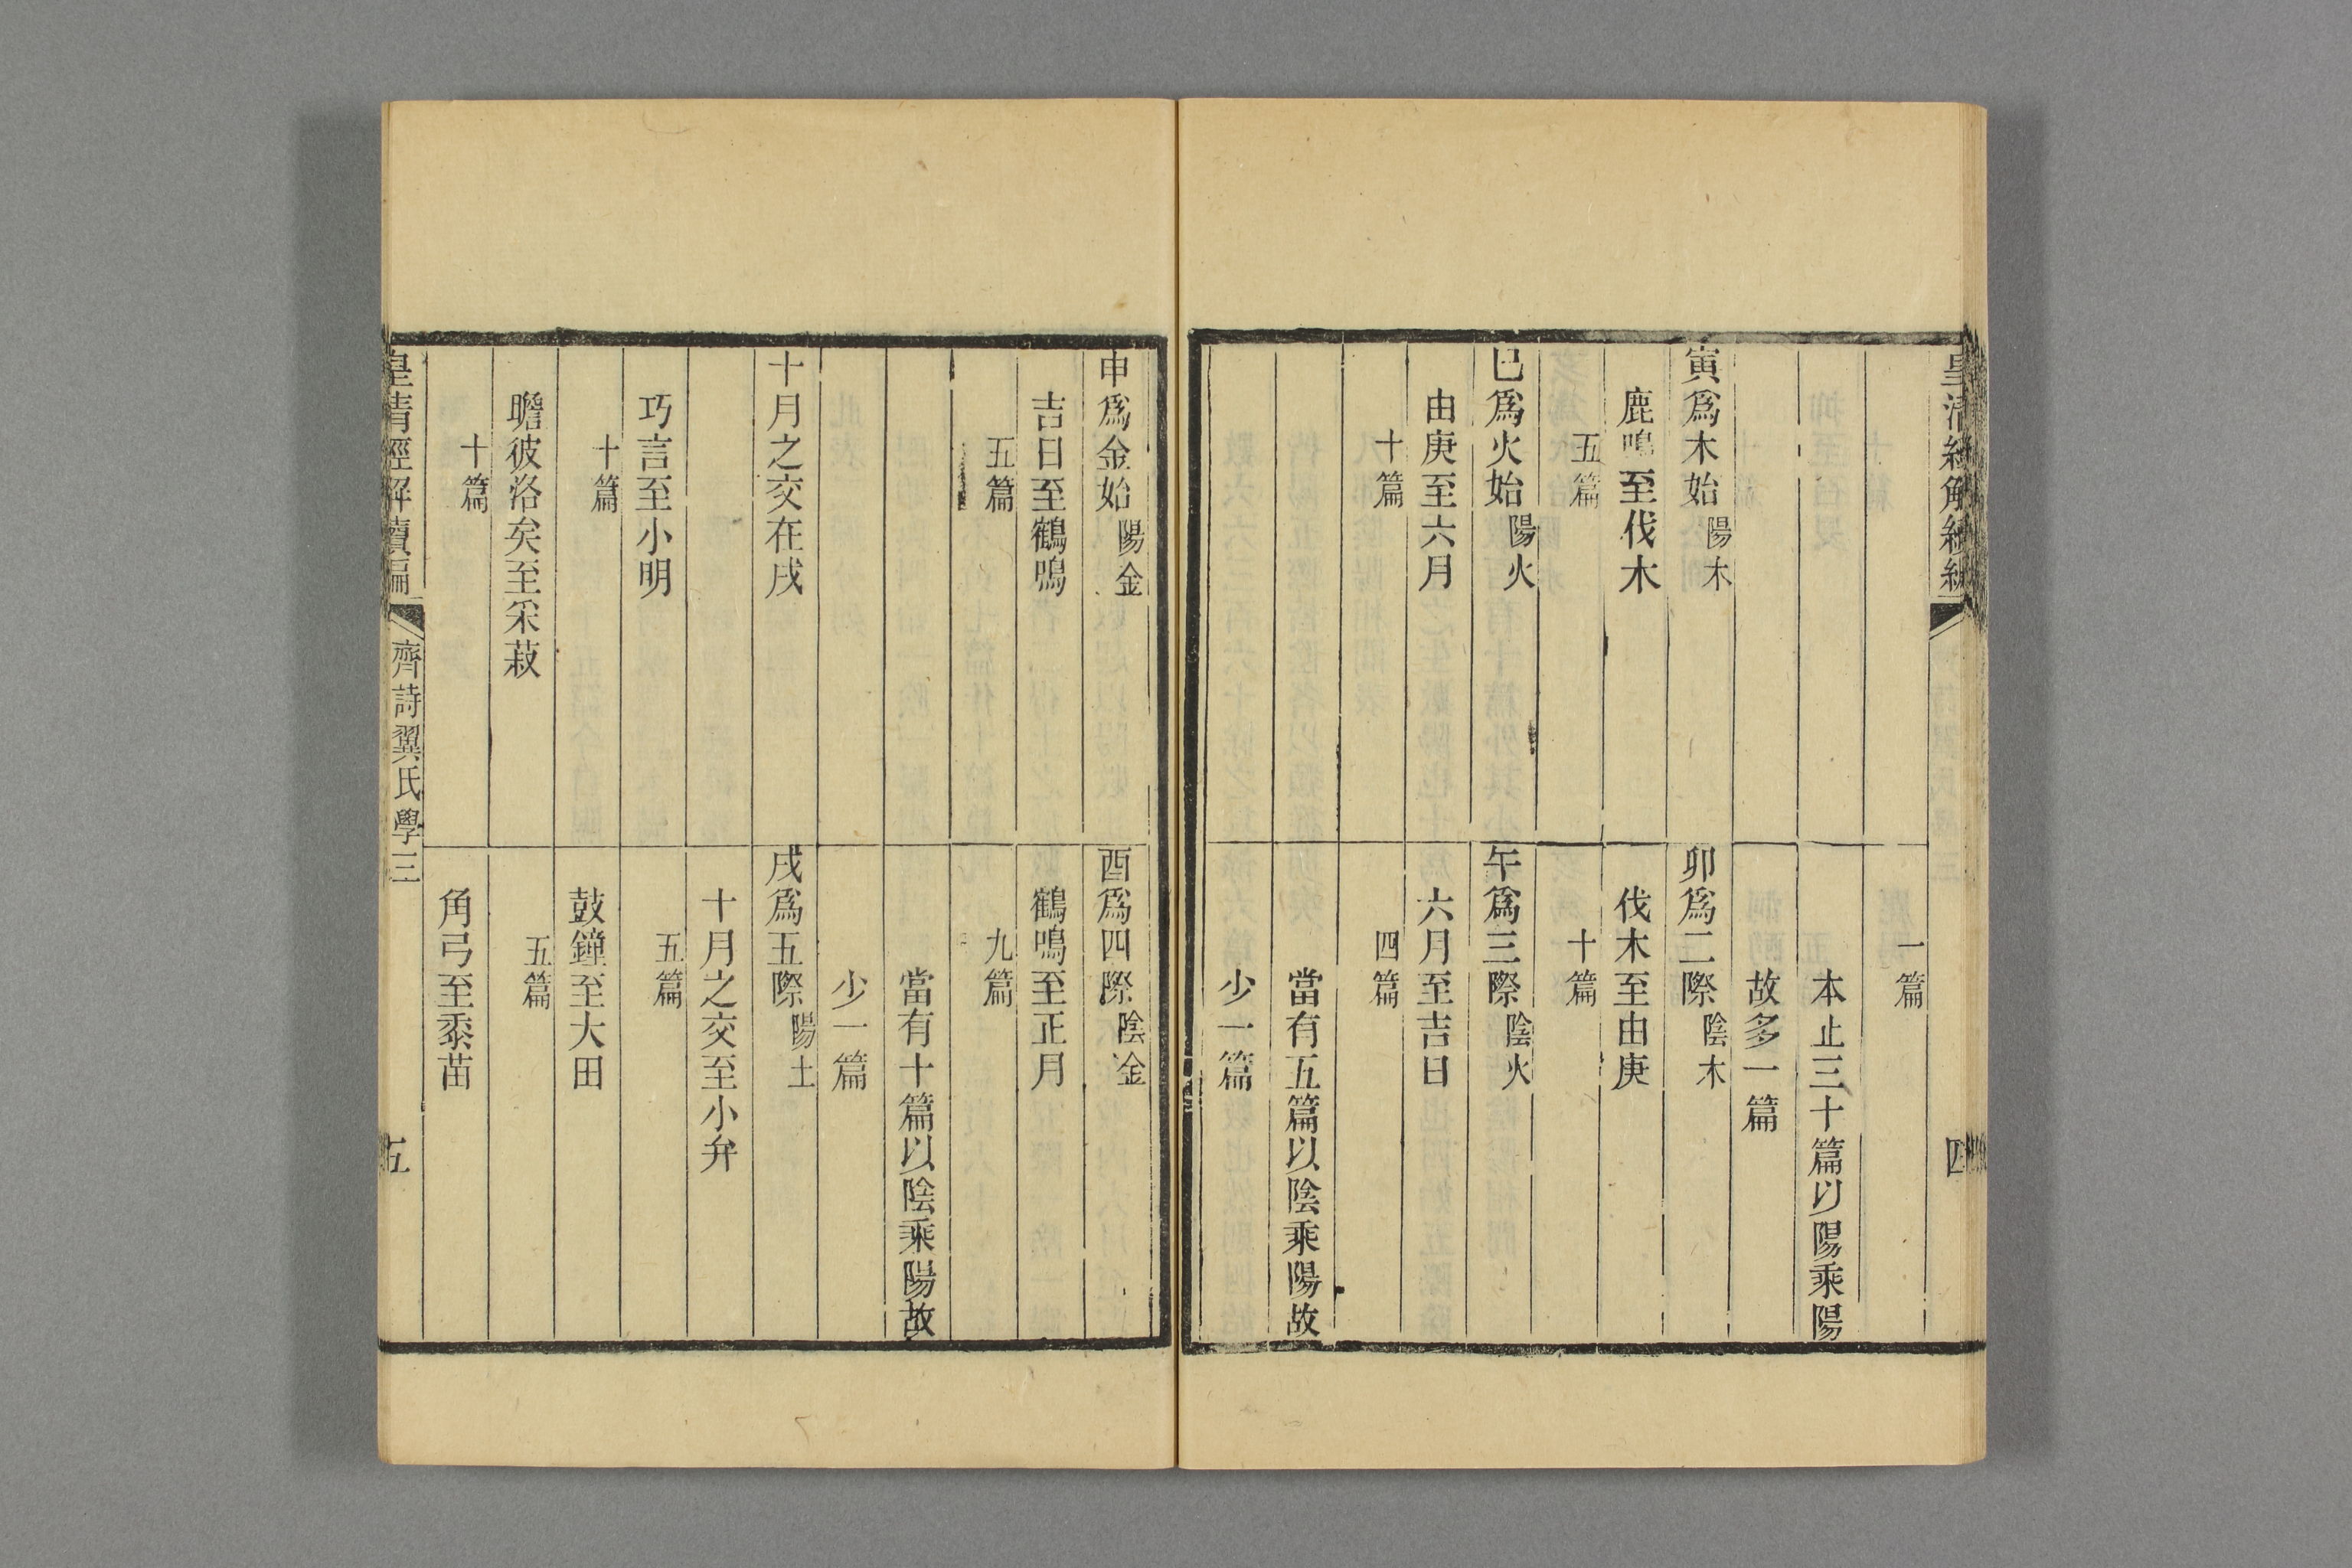 一篇
本止三十篇以陽乘陽
故多一篇
寅爲木始陽木
卯爲二際陰木
鹿鳴至伐木
伐木至由庚
五篇
十篇
巳爲火始陽火
午爲三際陰火
由庚至六月
六月至吉日
十篇
四篇
當有五篇以陰乘陽故
少一篇
四
申爲金始陽金
酉爲四際陰金
吉日至鶴鳴
鶴鳴至正月
五篇
九篇
當有十篇以陰乘陽故
少一篇
十月之交在戌
戌爲五際陽土
十月之交至小弁
巧言至小明
五篇
十篇
鼓鐘至大田
瞻彼洛矣至采菽
五篇
十篇
角弓至黍苗
皇清經解續編
齊詩翼氏學三
五